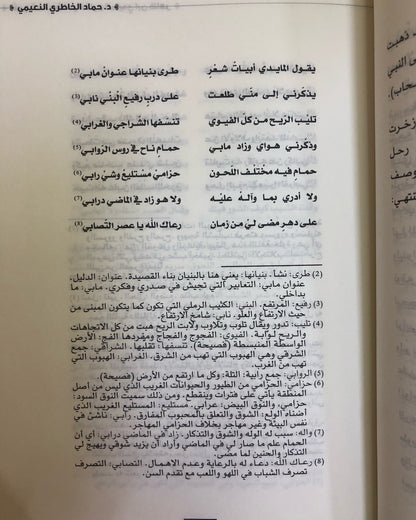 د. حماد الخاطري النعيمي
يقول المايدي أبيات شعرٍ طرى بنيانها عنوان مابي (2)
يذكرني إلى منّي طلعت على دربٍ رفيع البْني نابي (3)
تليب الرّيح من كلّ الفيوي تنسفها الشّراجي والغرابي (4)
وذكّرني هواي وزاد مابي حمام ناح في روس الرّوابي (5)
حمامٍ فيه مختلف اللحون حزاميّ مستليع وشيّ رابي (6)
ولا ادري بما وآلة عليْه ولا هو زاد في الماضي درابي (7)
على دهرٍ مضى ليّ من زمان رعاك الله يا عصر التّصابي (8)
(2) طرى: نشأ. بنيانها: يعني هنا بالبنيان بناء القصيدة. عنوان: الدليل.
عنوان مابي: التعابير التي تجيش في صدري وفكري. مابي: ما
بداخلي.
(3) رفيع: المرتفع. البني: الكثيب الرملي التي كما يتكون المبنى من
حيث الارتفاع والعلو. نابي: شامخ الارتفاع.
(4) تليب: تدور ويقال تلوب وتلاوب ولابت الريح هبت من كل الاتجاهات
والريح لوّابة. الفيوي: الفجوج والفجاج ومفردها الفج: الأرض
الواسطة المنبسطة (فصيحة). تنسفها: تقلبها. الشراقي: جمع
الشرقي وهي الهبوب التي تهب من الشرق. الغرابي: الهبوب التي
تهب من الغرب.
(5) الروابي: جمع رابية: التلة وكل ما ارتفع من الأرض (فصيحة).
(6) حزامي: الحزامي من الطيور والحيوانات الغريب الذي ليس من أصل
المنطقة يأتي على فترات وينقطع، ومن ذلك سميت النوق السود:
حزامي، والنوق البيض: عرابي. مستليع: المستليع الغريب الذي
أضناه الولع: الشوق والتعلق بالمحبوب المفارق. رابي: ناشئ في
نفس البيئة وغير مهاجر بخلاف الحزامي المهاجر.
(7) واله: سبب له الوله والشوق والتذكار. زاد في الماضي درابي: أي أن
الحمام علم ما صار لي في الماضي وأراد أن يزيد شوقي ويهيج لي
التذكار والحنين لما مضى.
(8) رعاك الله: دعاء له بالرعاية وعدم الإهمال. التصابي: التصرف
تصرف الشباب في اللهو واللعب مع تقدم السن.